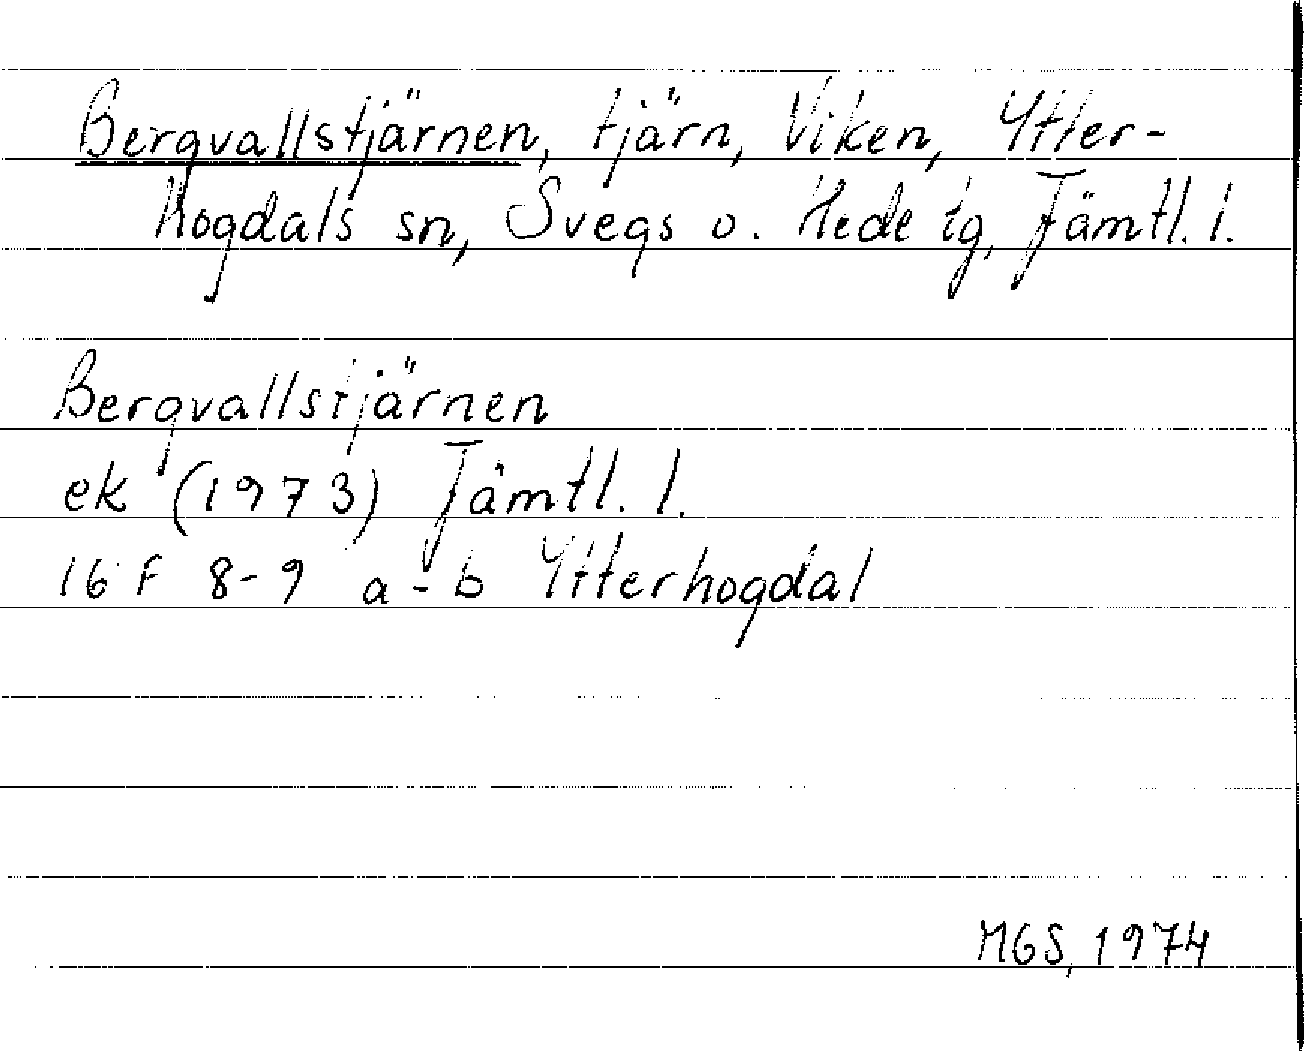 Bergvallstjärnen, tjärn, Viken, Ytter-
Hogdals sn, Svegs o. Hede tg, Jämtl. l.
Bergvallstjärnen
ek (1973) Jämtl. l.
16 F 8-9 a-b Ytterhogdal
MGS, 1974